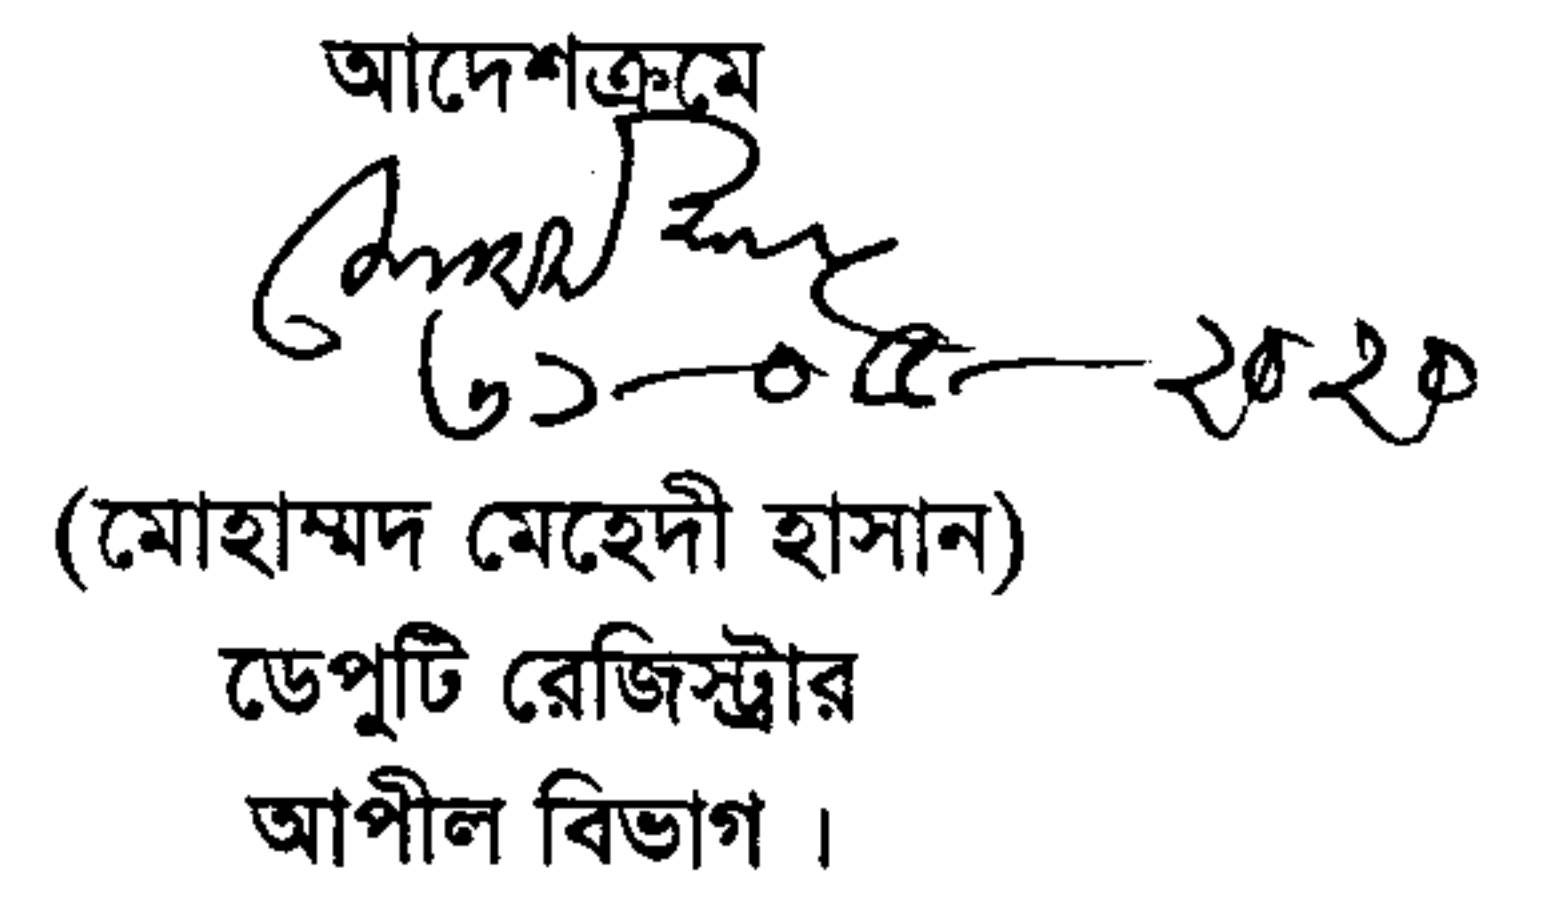 আদেশক্রমে
৩১-০৫-২০২০
(মোহাম্মদ মেহেদী হাসান)
ডেপুটি রেজিস্ট্রার
আপীল বিভাগ ।